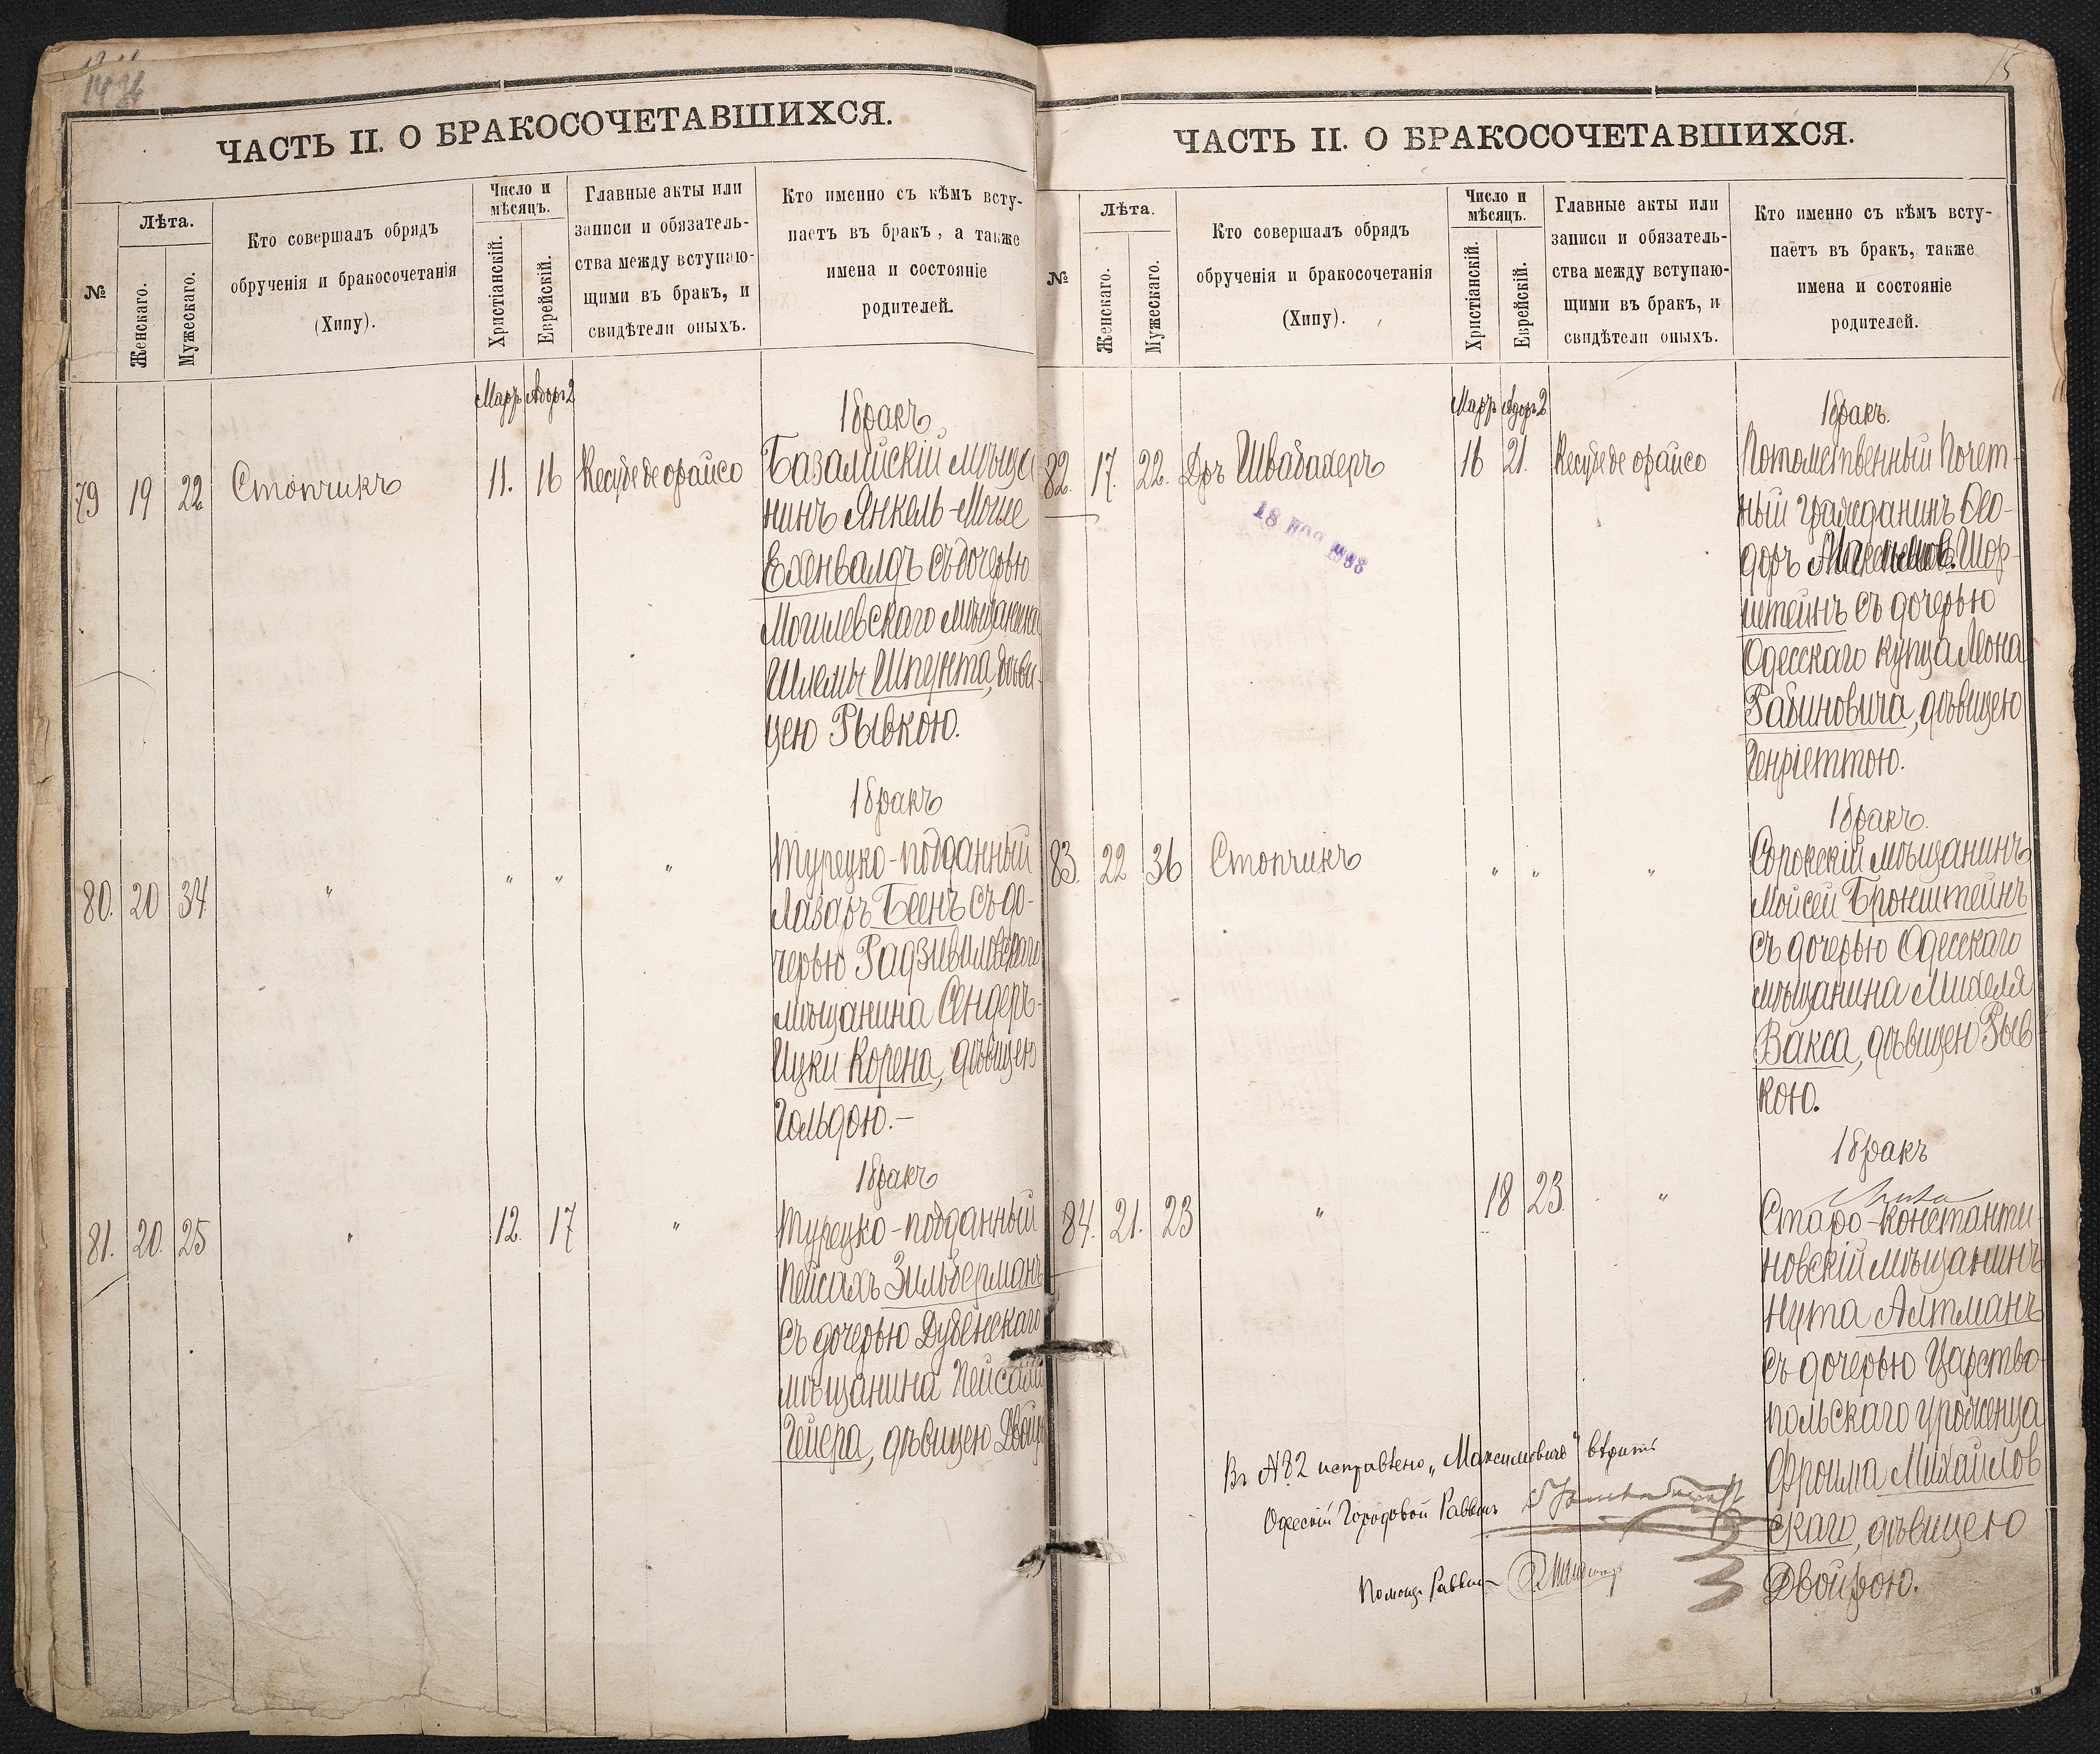 14
ЧАСТЬ II. О БРАКОСОЧЕТАВШИХСЯ.
№
Лѣта.
Женскаго.
Мужескаго.
Кто совершалъ обрядъ
обрученія и бракосочетанія
(Хипу).
Число и
мѣсяцъ.
Христіанскій.
Еврейскій.
Главные акты или
записи и обязатель-
ства между вступаю-
щими въ бракъ, и
свидѣтели оныхъ.
Кто именно съ кѣмъ всту-
паетъ въ бракъ, а также
имена и состояніе
родителей.
Мартъ Адоръ 2
1 бракъ
79 19 22 Стопчикъ 11. 16 Кесубе деорайсо
Базалійскій мѣща
нинъ Янкель-Моше
Ехенвалдъ съ дочерью
Могилевскаго мѣщанина
Шлемы Шпунта, дѣви-
цею Рывкою.
1 бракъ
80. 20 34. " " " "
Турецко-подданный
Лазарь Беенъ съ до-
черью Радзивиловскаго
мѣщанина Сендеръ-
Ицки Корена, дѣвицею
Гольдою.—
1 бракъ
81. 20. 25 " 12. 17 "
Турецко-подданный
Пейсахъ Зильберманъ
съ дочерью Дубенскаго
мѣщанина Пейсаха
Гейера, дѣвицею
15
ЧАСТЬ II. О БРАКОСОЧЕТАВШИХСЯ.
№
Лѣта.
Женскаго.
Мужескаго.
Кто совершалъ обрядъ
обрученія и бракосочетанія
(Хипу).
Число и
мѣсяцъ.
Христіанскій.
Еврейскій.
Главные акты или
записи и обязатель-
ства между вступаю-
щими въ бракъ, и
свидѣтели оныхъ.
Кто именно съ кѣмъ всту-
паетъ въ бракъ, также
имена и состояніе
родителей.
Мартъ Адоръ 2
1 бракъ.
82. 17. 22. Дръ Швабахеръ 16 21. Кесубе де орайсо
Потомственный Почет-
ный гражданинъ Ѳео-
доръ Шор-
штейнъ съ дочерью
Одесскаго купца Леона
Рабиновича, дѣвицею
Генріеттою.
18 НОЯ
1 бракъ.
83. 22 36 Стопчикъ " " "
Сорокскій мѣщанинъ
Мойсей Бронштейнъ
съ дочерью Одесскаго
мѣщанина Михеля
Вакса, дѣвицею Рыв
кою.
1 бракъ
84. 21. 23 " 18 23. "
Старо-константи-
новскій мѣщанинъ
Нута Алтманъ
съ дочерью Царства
польскаго уроженца
Фроима Михайлов
скаго, дѣвицею
Двойрою.
Въ №82 исправлено „Максимовичъ“ вѣрить
Одесскій Городовой Раввинъ
Помощ. Раввина